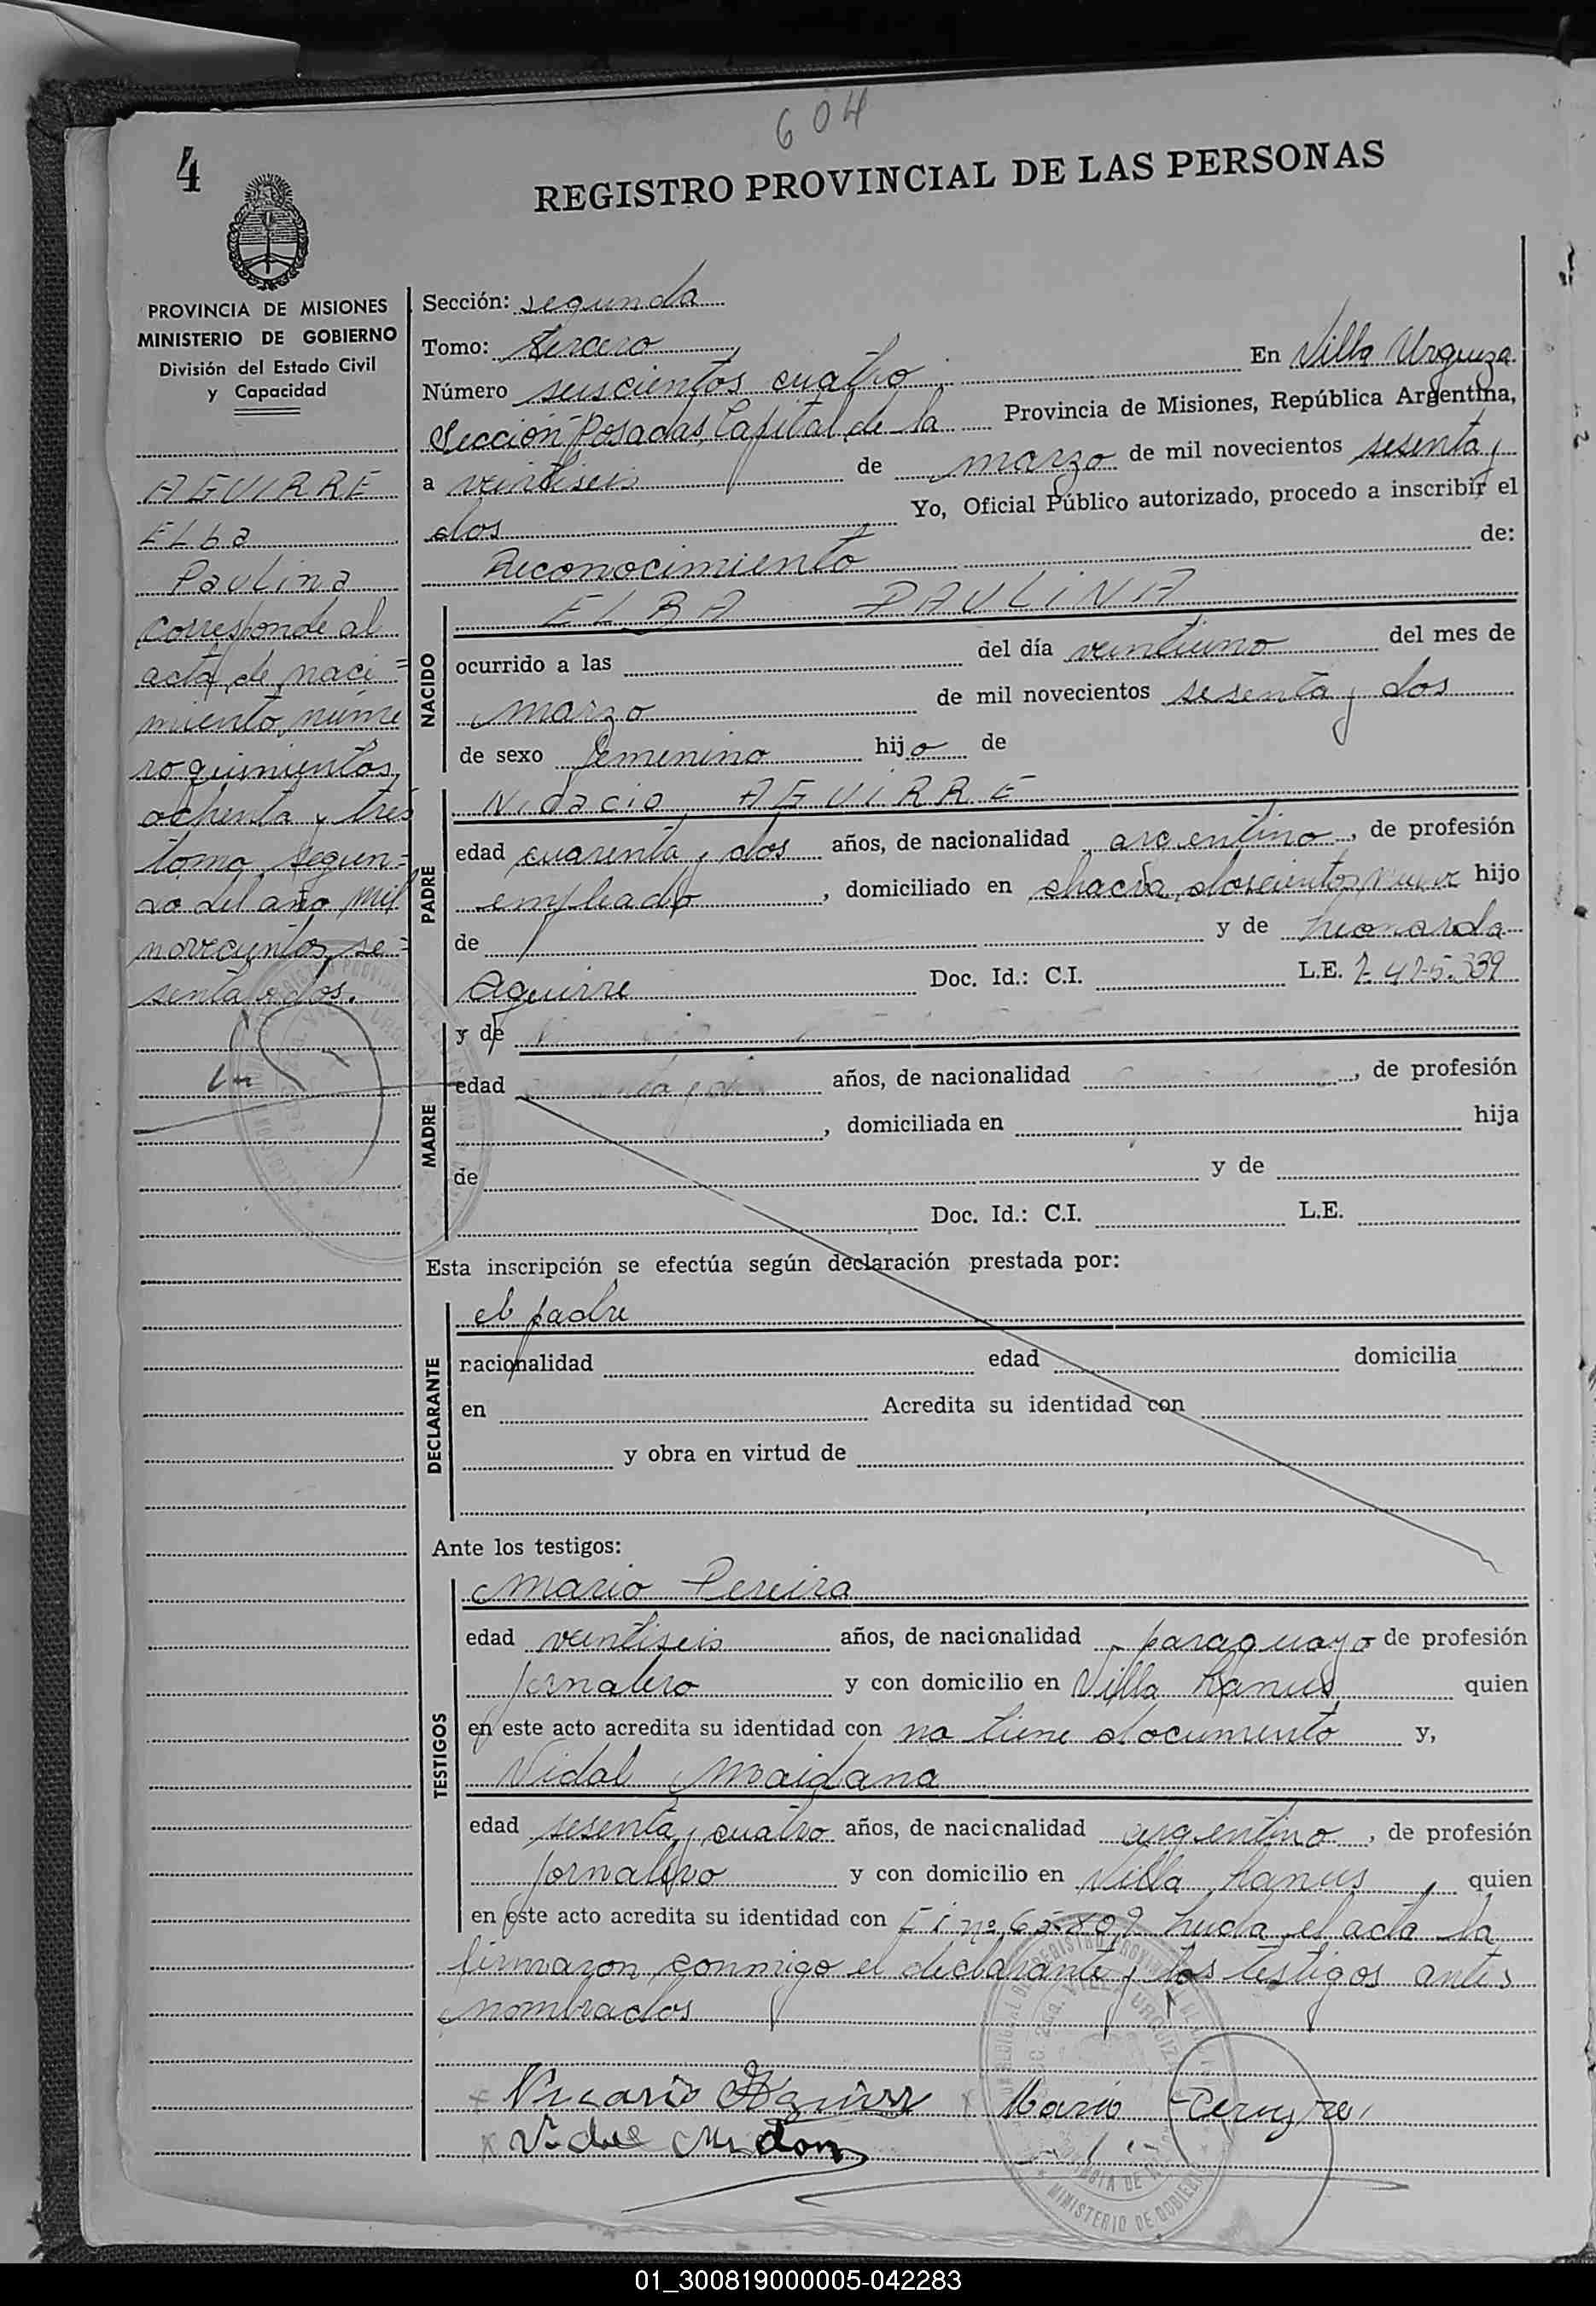 604
4
REGISTRO PROVINCIAL DE LAS PERSONAS
PROVINCIA DE MISIONES
MINISTERIO DE GOBIERNO
División del Estado Civil
y Capacidad
AGUIRRE
ELba
Paulina
Corresponde al
acta de naci=
miento núme
ro quinientos
ochenta y tres
tomo segun=
do del año mil
novecientos se=
senta y dos.
Sección: segunda
Tomo: tercero
Número seiscientos cuatro En Villa Urquiza
Sección Posadas Capital de la Provincia de Misiones, República Argentina,
a veintiseis de marzo de mil novecientos sesenta y
dos Yo, Oficial Público autorizado, procedo a inscribir el
Reconocimiento de:
NACIDO
ELBA PAULINA
ocurrido a las del día veintiuno del mes de
marzo de mil novecientos sesenta y dos
de sexo femenino hijo de
PADRE
AGUIRRE
edad cuarenta y dos años, de nacionalidad argentino, de profesión
empleado, domiciliado en chacra doscientos nueve hijo
de y de Leonarda
Aguirre Doc. Id.: C.I. L.E. 2.425.339
MADRE
y de
edad años, de nacionalidad , de profesión
, domiciliada en hija
de y de
Doc. Id.: C.I. L.E.
Esta inscripción se efectúa según declaración prestada por:
DECLARANTE
el padre
nacionalidad edad domicilia
en Acredita su identidad con
y obra en virtud de
Ante los testigos:
TESTIGOS
Mario Pereira
edad veintiseis años, de nacionalidad paraguayo de profesión
jornalero y con domicilio en Villa Lanus quien
en este acto acredita su identidad con no tiene documento y,
Vidal Maidana
edad sesenta y cuatro años, de nacionalidad argentino, de profesión
jornalero y con domicilio en Villa Lanus, quien
en este acto acredita su identidad con nº 65.809 leida el acta la
firmaron conmigo el declarante y los testigos antes
nombrados
Mario
01_300819000005-042283